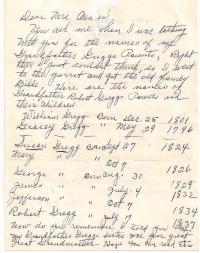 Dear Mrs.
You ask me when I was talking
with you for the names of my
Grandfathers Greggs Parents, Right
then I just couldn't think, so I went
to the and got the old family
Bible. Here are the names of
Grandfather Robert Gregg Parents and
their Children
William Gregg Born Dec. 25 1801
Gregg " May 29 1796
Gregg Born Sept 27 1824
Mary " " Oct 7
George " Born Aug. 30 1826
James " " July 4 1829
Jefferson " " Oct 7 1832
Robert Gregg " July 7 1834
Now do you remember I told you
my Grandfather Greggs sister was your great
Great Grandmother. Hope you can read this